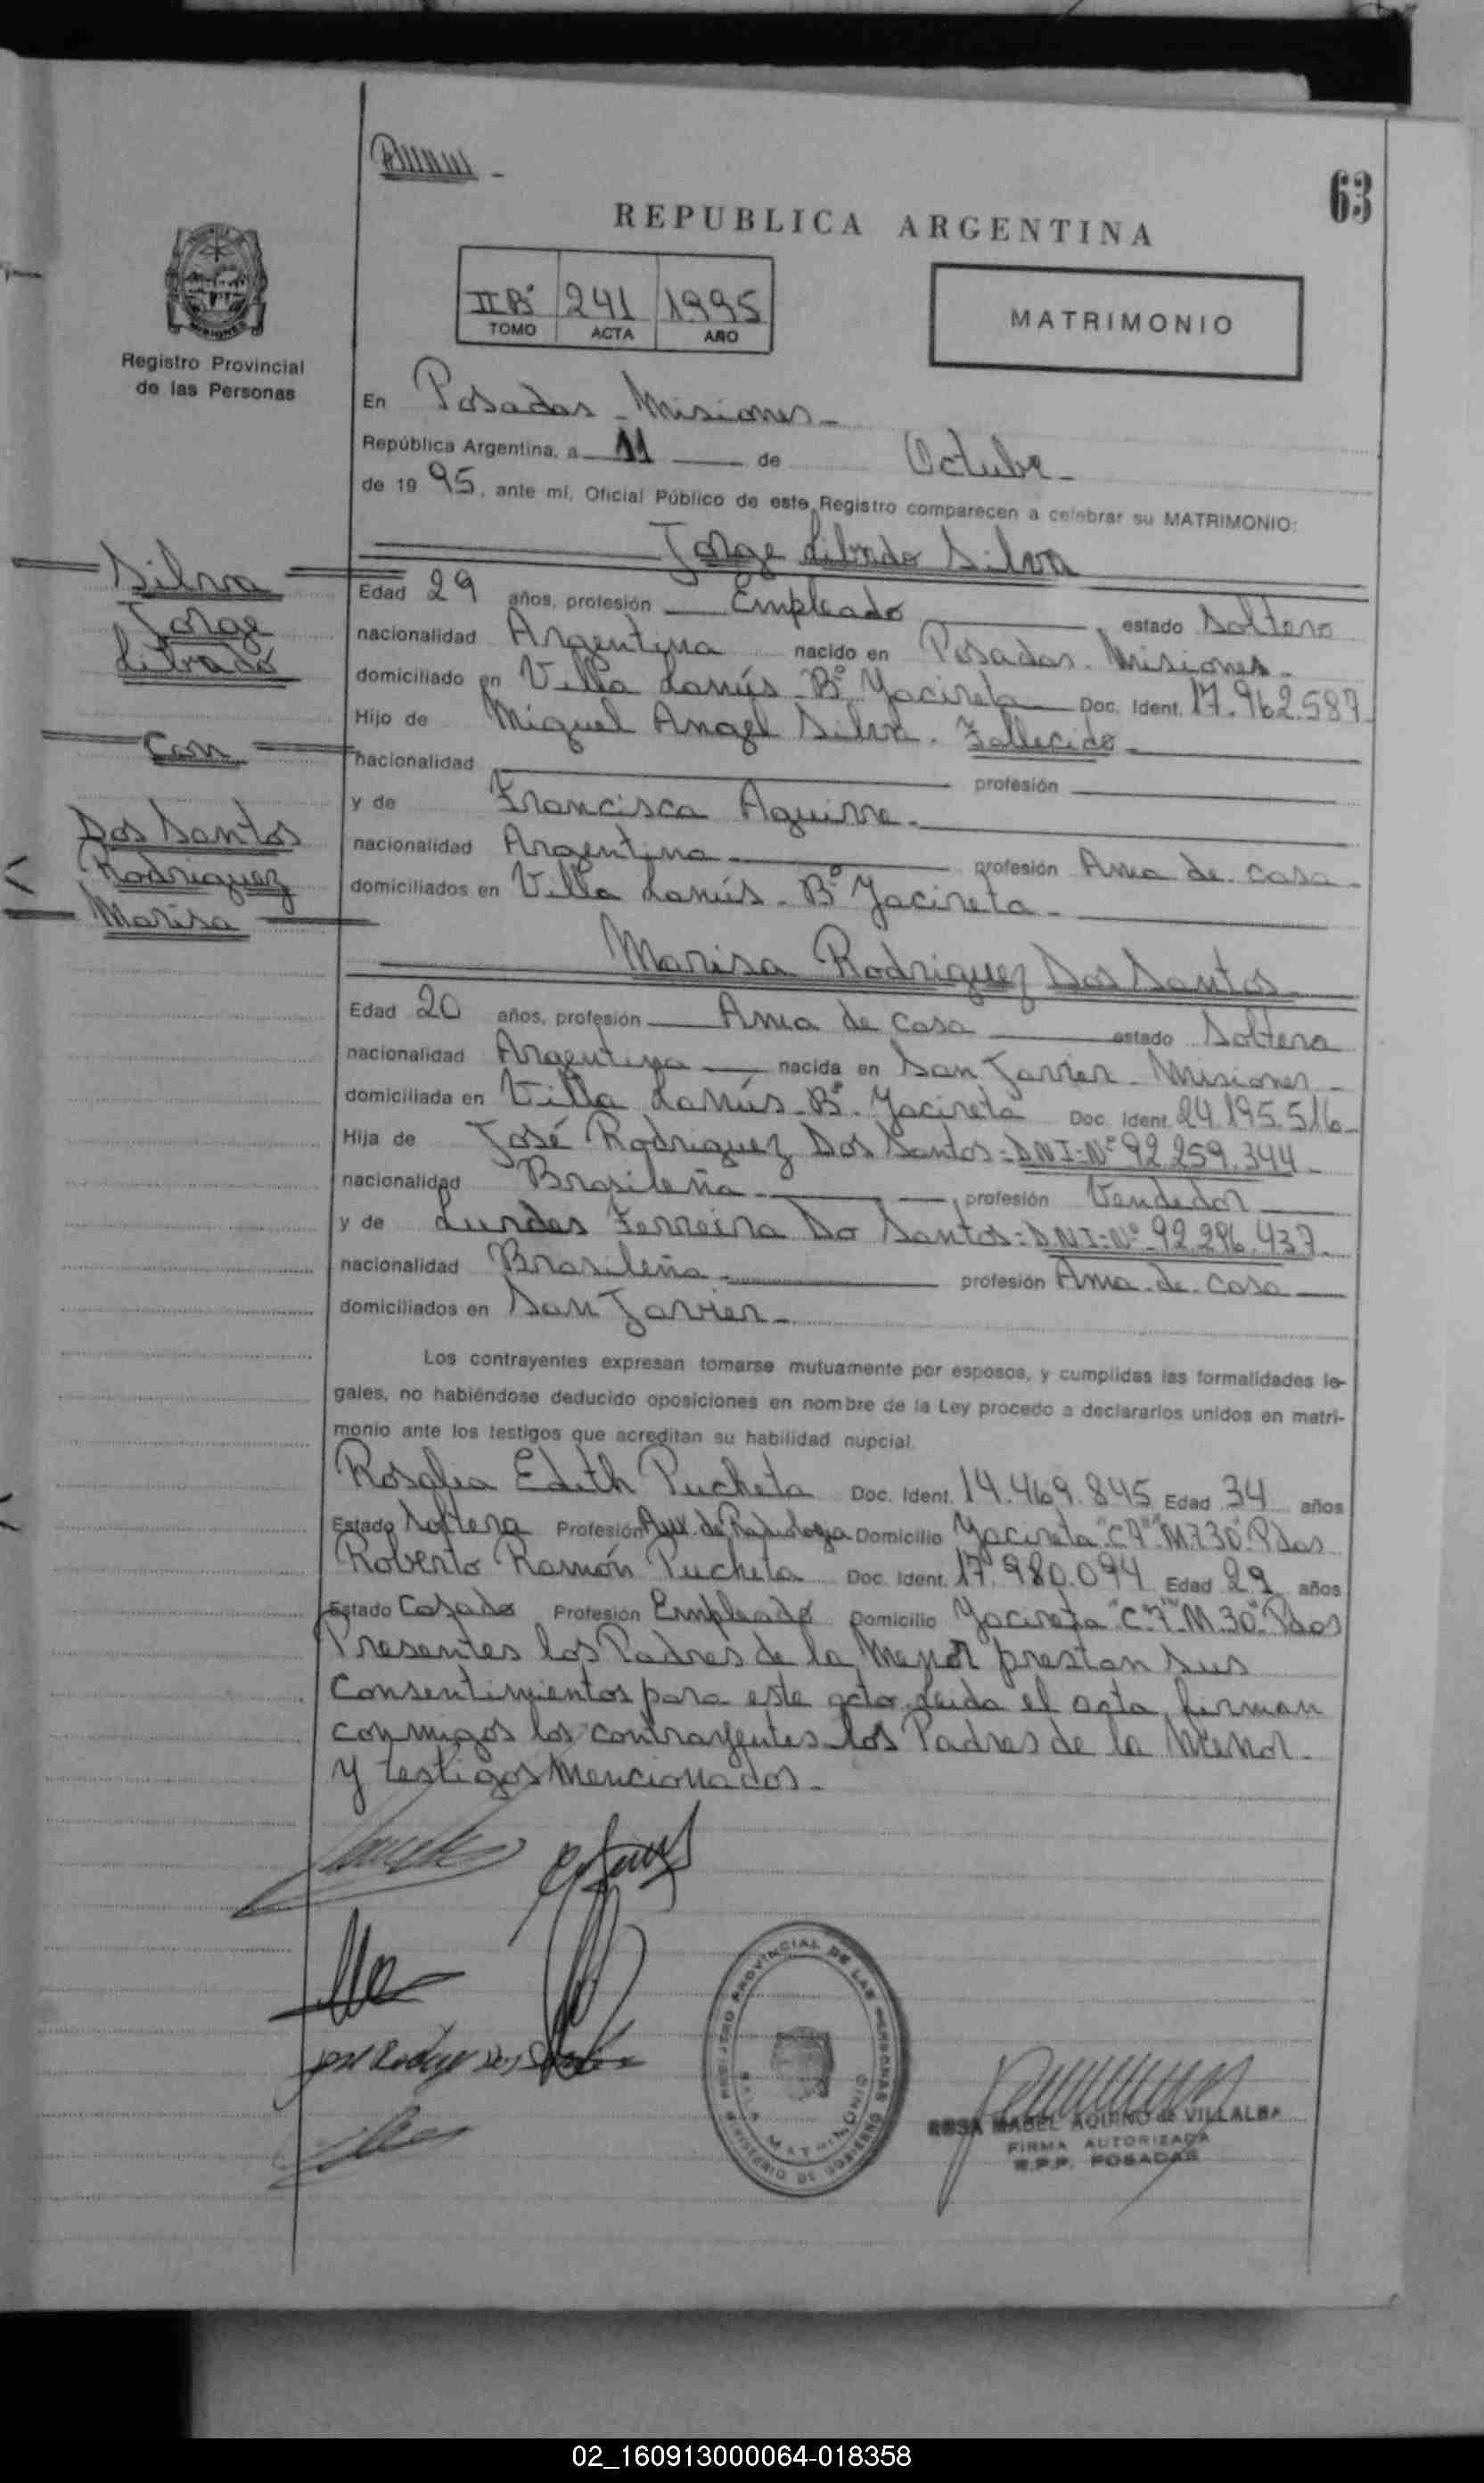 63
REPUBLICA ARGENTINA
II Bº 241 1995
TOMO ACTA AÑO
MATRIMONIO
Registro Provincial
de las Personas
En Posadas - Misiones -
República Argentina, a 11 de Octubre -
de 19 95, ante mí, Oficial Público de este Registro comparecen a celebrar su MATRIMONIO:
Jorge Librado Silva
Silva
Jorge
Librado
Con
Dos Santos
Rodriguez
Marisa
Edad 29 años, profesión Empleado estado Soltero
nacionalidad Argentina nacido en Posadas - Misiones -
domiciliado en Villa Lanús - Bº Yacireta Doc. Ident. 17.962.587
Hijo de Miguel Angel Silva - Fallecido -
nacionalidad profesión
y de Francisca Aguirre -
nacionalidad Argentina - profesión Ama de casa -
domiciliados en Villa Lanús - Bº Yacireta -
Marisa Rodriguez Dos Santos -
Edad 20 años, profesión Ama de casa estado Soltera
nacionalidad Argentina nacida en San Javier - Misiones -
domiciliada en Villa Lanús - Bº. Yacireta Doc. Ident. 24.195.516 -
Hija de José Rodriguez Dos Santos = DNI=Nº 92.259.344 -
nacionalidad Brasileña - profesión Vendedor
y de Lurdes Ferreira Do Santos = DNI=Nº 92.296.437 -
nacionalidad Brasileña - profesión Ama de casa
domiciliados en San Javier -
Los contrayentes expresan tomarse mutuamente por esposos, y cumplidas las formalidades le-
gales, no habiéndose deducido oposiciones en nombre de la Ley procedo a declararlos unidos en matri-
monio ante los testigos que acreditan su habilidad nupcial.
Rosalia Edith Pucheta Doc. Ident. 14.469.845 Edad 34 años
Estado Soltera Profesión Aux. de Radiología Domicilio Yacireta "C7" M730" Pdas
Roberto Ramón Pucheta Doc. Ident. 17.980.094 Edad 29 años
Estado Casado Profesión Empleado Domicilio Yacireta "C.7" M.30" Pdas
Presentes los Padres de la Menor prestan sus
Consentimientos para este acto. Leida el acta, firman
conmigos los contrayentes los Padres de la Menor -
y testigos Mencionados -
REGISTRO PROVINCIAL DE LAS PERSONAS
MINISTERIO DE GOBIERNO
SALA MATRIMONIO
ROSA MABEL AQUINO de VILLALBA
FIRMA AUTORIZADA
R.P.P. POSADAS
02_160913000064-018358